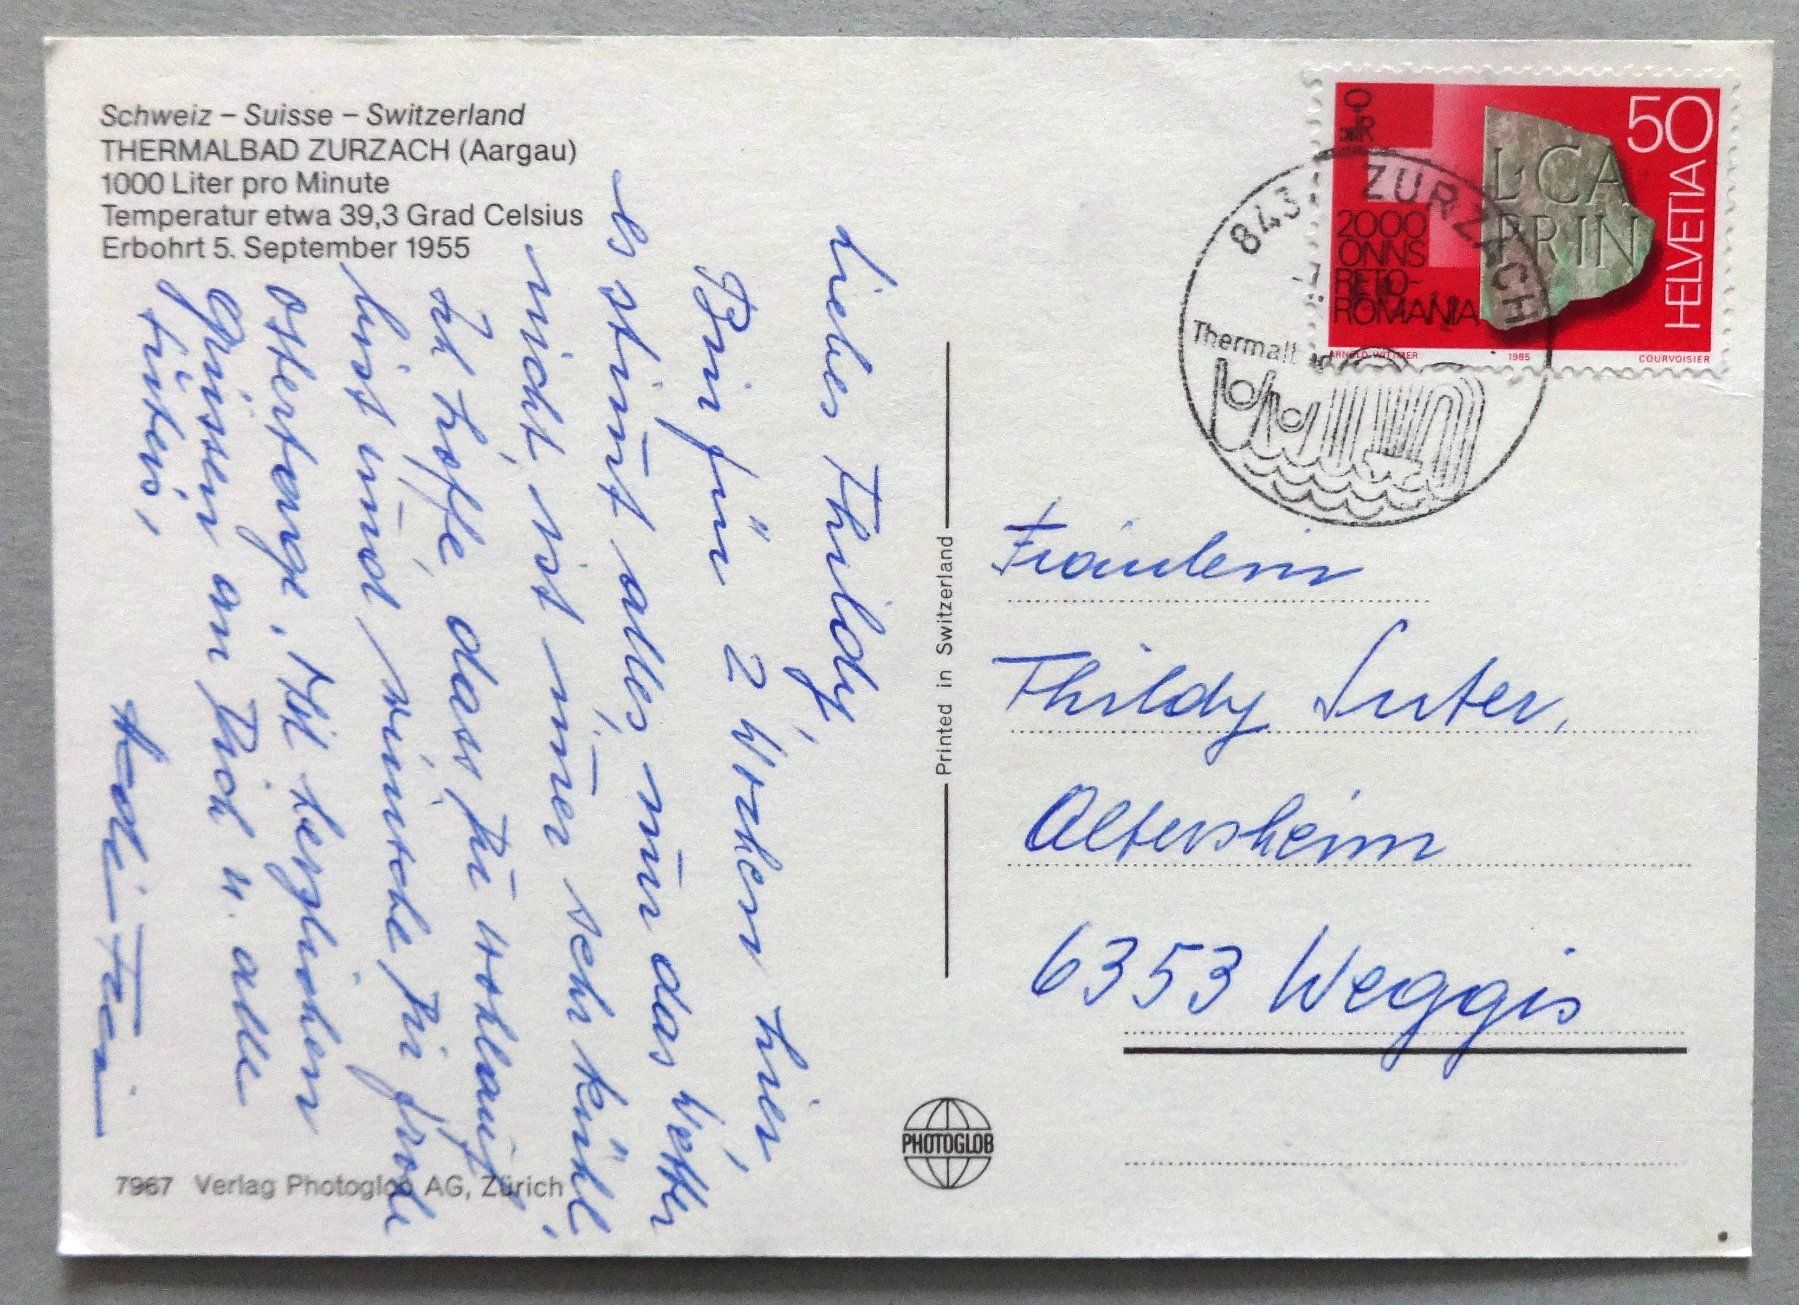 Schweiz – Suisse – Switzerland
THERMALBAD ZURZACH (Aargau)
1000 Liter pro Minute
Temperatur etwa 39,3 Grad Celsius
Erbohrt 5. September 1955
Liebes Thildy,
Bin für 2 Wochen hier,
es stimmt alles, nur das Wetter
nicht, ist immer sehr kühl.
Ich hoffe, dass Du wohlauf
bist und wünsche Dir frohe
Ostertage. Mit herzlichen
Grüssen an Dich u. alle
7967 Verlag Photoglob AG, Zürich
Printed in Switzerland
PHOTOGLOB
50
HELVETIA
L CA
PRIN
2000
ONNS
RETO-
ROMANIA
ARNOLD WITTMER 1985 COURVOISIER
843 ZURZACH
Thermalbad
Fräulein
Thildy Suter,
Altersheim
6353 Weggis